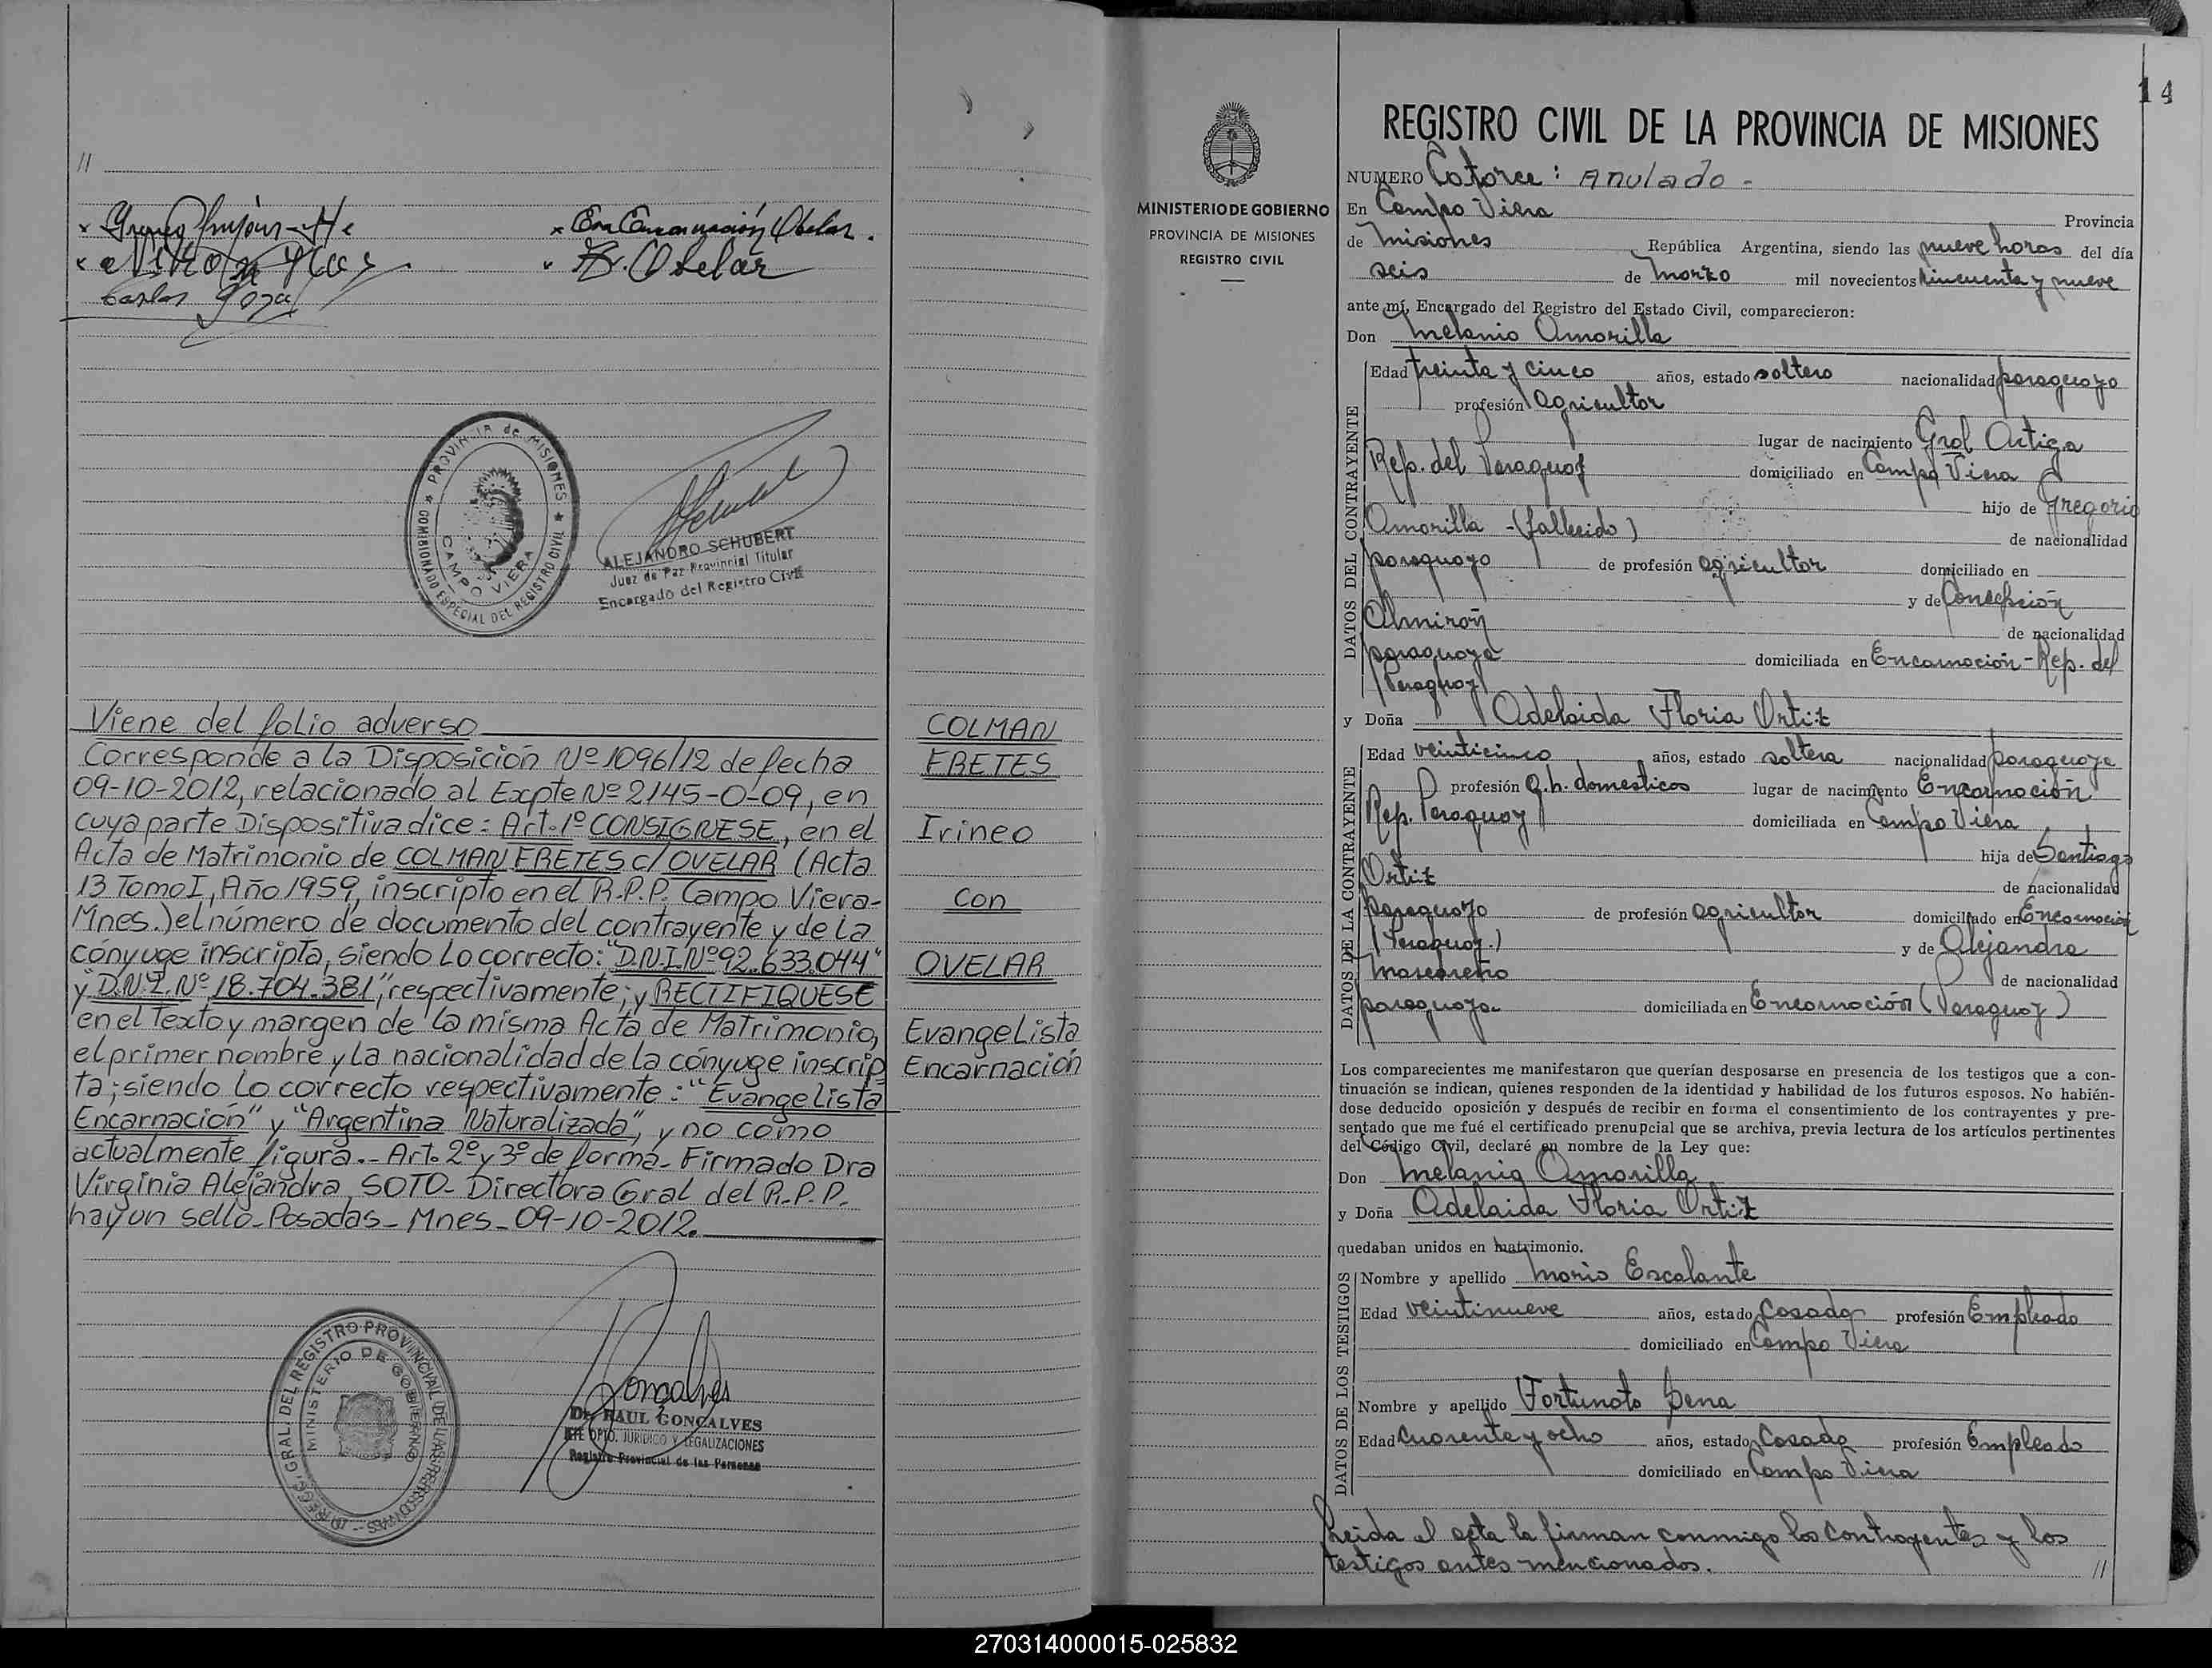 //
x Eva Encarnación Obelar.
Obelar
Carlos
PROVINCIA de MISIONES
COMISIONADO ESPECIAL DEL REGISTRO CIVIL
CAMPO VIERA
ALEJANDRO SCHUBERT
Juez de Paz Provincial Titular
Encargado del Registro Civil
Viene del folio adverso
Corresponde a la Disposición Nº 1096/12 de fecha
09-10-2012, relacionado al Expte Nº 2145-O-09, en
cuya parte Dispositiva dice: Art. 1º CONSIGNESE, en el
Acta de Matrimonio de COLMAN FRETES C/ OVELAR (Acta
13 Tomo I, Año 1959, inscripto en el R.P.P. Campo Viera-
Mnes.) el número de documento del contrayente y de la
cónyuge inscripta, siendo lo correcto: "D.N.I. Nº 92.633.044"
y "D.N.I. Nº 18.704.381", respectivamente; y RECTIFIQUESE
en el Texto y margen de la misma Acta de Matrimonio,
el primer nombre y la nacionalidad de la cónyuge inscrip
ta; siendo lo correcto respectivamente: "Evangelista
Encarnación" y "Argentina Naturalizada", y no como
actualmente figura.- Art. 2º y 3º de forma- Firmado Dra
Virginia Alejandra SOTO- Directora Gral del R.P.P.
hay un sello- Posadas- Mnes- 09-10-2012.
COLMAN
FRETES
Irineo
Con
OVELAR
Evangelista
Encarnación
DIRECC. GRAL DEL REGISTRO PROVINCIAL DE LAS PERSONAS
MINISTERIO DE GOBIERNO
Goncalves
Dr. RAUL GONCALVES
JEFE DPTO. JURIDICO Y LEGALIZACIONES
Registro Provincial de las Personas
14
MINISTERIO DE GOBIERNO
PROVINCIA DE MISIONES
REGISTRO CIVIL
REGISTRO CIVIL DE LA PROVINCIA DE MISIONES
NUMERO Catorce: Anulado-
En Campo Viera Provincia
de Misiones República Argentina, siendo las nueve horas del día
seis de Marzo mil novecientos cincuenta y nueve
ante mí, Encargado del Registro del Estado Civil, comparecieron:
Don Melanio Amarilla
DATOS DEL CONTRAYENTE
Edad treinta y cinco años, estado soltero nacionalidad paraguayo
profesión agricultor
lugar de nacimiento Gral Artiga
Rep. del Paraguay domiciliado en Campo Viera
hijo de Gregorio
Amarilla -(fallecido) de nacionalidad
paraguayo de profesión agricultor domiciliado en
y de Concepción
Almirón de nacionalidad
paraguaya domiciliada en Encarnación-Rep. del
Paraguay
y Doña Adelaida Floria Ortiz
DATOS DE LA CONTRAYENTE
Edad veinticinco años, estado soltera nacionalidad paraguaya
profesión q.h. domesticos lugar de nacimiento Encarnación
Rep. Paraguay domiciliada en Campo Viera
hija de Santiago
Ortiz de nacionalidad
paraguayo de profesión agricultor domiciliado en Encarnación
(Paraguay.) y de Alejandra
de nacionalidad
paraguaya domiciliada en Encarnación (Paraguay)
Los comparecientes me manifestaron que querían desposarse en presencia de los testigos que a con-
tinuación se indican, quienes responden de la identidad y habilidad de los futuros esposos. No habién-
dose deducido oposición y después de recibir en forma el consentimiento de los contrayentes y pre-
sentado que me fué el certificado prenupcial que se archiva, previa lectura de los artículos pertinentes
del Código Civil, declaré en nombre de la Ley que:
Don Melanio Amarilla
y Doña Adelaida Floria Ortiz
quedaban unidos en matrimonio.
DATOS DE LOS TESTIGOS
Nombre y apellido Mario Escalante
Edad veintinueve años, estado Casado profesión Empleado
domiciliado en Campo Viera
Nombre y apellido Fortunato Sena
Edad cuarenta y ocho años, estado Casado profesión Empleado
domiciliado en Campo Viera
Leida el acta la firman conmigo los contrayentes y los
testigos antes mencionados. //
270314000015-025832